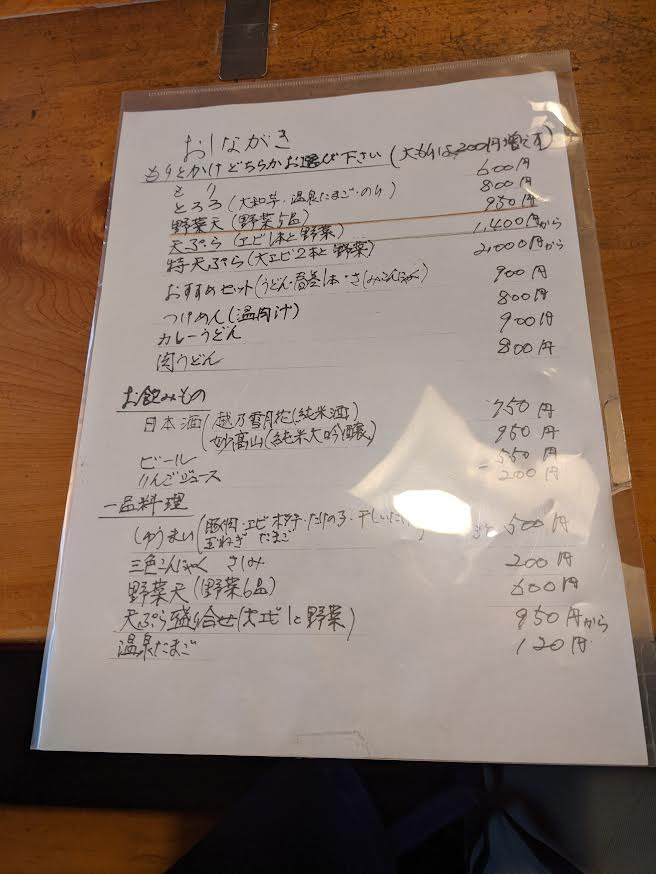 おしながき
もりとかけどちらかお選び下さい (大もりは200円増です)
もり 600円
とろろ (大和芋・温泉たまご・のり) 800円
野菜天 (野菜5品) 950円
天ぷら (エビ1本と野菜) 1,400円から
特天ぷら (大エビ2本と野菜) 2,000円から
おすすめセット (うどん・春巻1本・さしみこんにゃく) 900円
つけめん (温肉汁) 800円
カレーうどん 900円
肉うどん 800円
お飲みもの
日本酒 (越乃雪月花 (純米酒) 750円
(妙高山 (純米大吟醸) 950円
ビール 550円
りんごジュース 200円
一品料理
しゅうまい (豚肉・エビ・たけの子・干しいたけ 500円
玉ねぎ たまご
三色こんにゃく さしみ 200円
野菜天 (野菜6品) 600円
天ぷら盛り合せ (大エビ1と野菜) 950円から
温泉たまご 120円